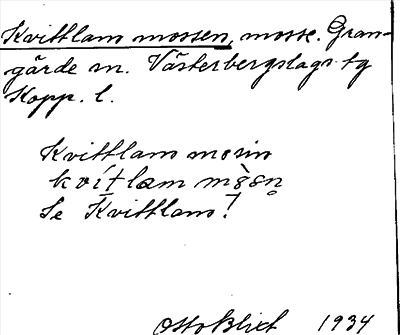 Kvittlam mossen, mosse. Gran-
gärde sn. Västerbergslags tg
Kopp. l.
Kvittlam mosin
Se Kvittlam!
Otto Blixt 1934